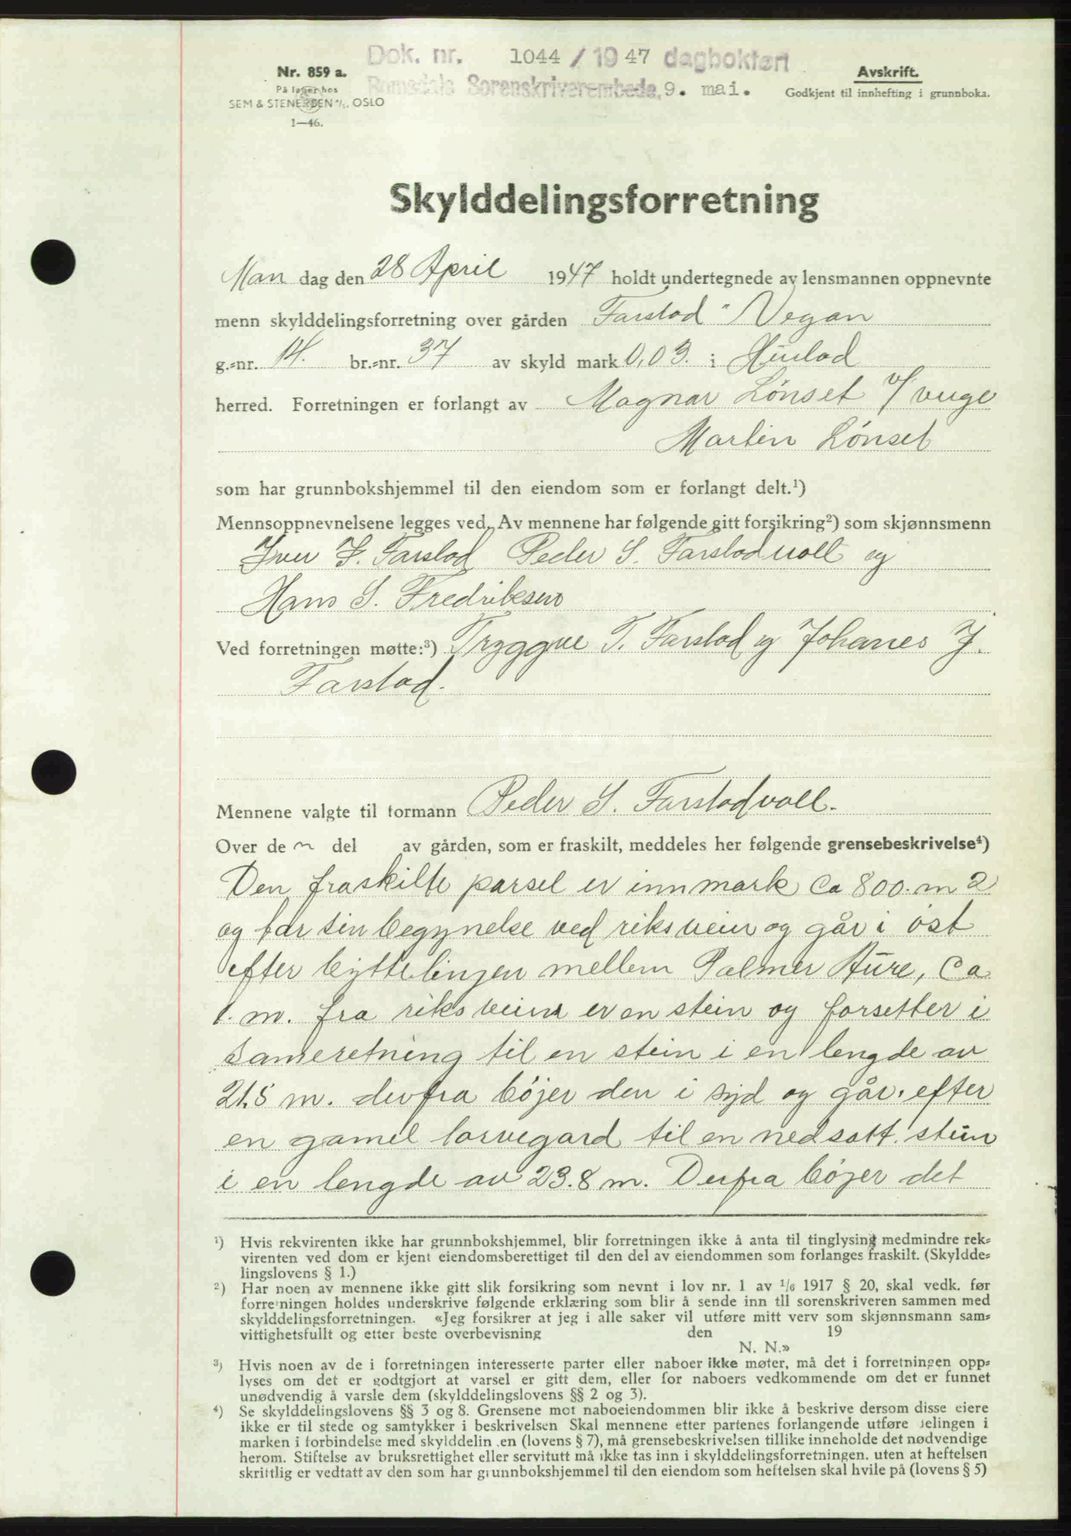 Dok. nr. 1044 / 1947 dagboktørt
Nr. 859 a. Romsdals Sorenskriverembede, 9. mai. Avskrift.
På lager hos
SEM & STENERSEN A/S, OSLO Godkjent til innhefting i grunnboka.
1—46.
Skylddelingsforretning
Man dag den 28 April 1947 holdt undertegnede av lensmannen oppnevnte
menn skylddelingsforretning over gården Farstad "Vegan
g.-nr. 14. br.-nr. 37 av skyld mark 0,03. i Hustad
herred. Forretningen er forlangt av Magnar Lønset v/ verge
Martin Lønset
som har grunnbokshjemmel til den eiendom som er forlangt delt.¹)
Mennsoppnevnelsene legges ved. Av mennene har følgende gitt forsikring²) som skjønnsmenn
Iver J. Farstad Peder S. Farstadvoll og
Hans S. Fredriksen
Ved forretningen møtte:³) Tryggve T. Farstad og Johanes J.
Farstad.
Mennene valgte til formann Peder S. Farstadvoll.
Over de n del av gården, som er fraskilt, meddeles her følgende grensebeskrivelse⁴)
Den fraskilte parsel er innmark ca 800. m 2
og tar sin begynelse ved riksveien og går i øst
efter byttelinjen mellem Palmer Aure, Ca
1. m. fra riksveien er en stein og forsetter i
sameretning til en stein i en lengde av
21.5 m. derfra bøjer den i syd og går efter
en gamel torvegard til en nedsatt stein
i en lengde av 23.8 m. Derfra bøjer det
¹) Hvis rekvirenten ikke har grunnbokshjemmel, blir forretningen ikke å anta til tinglysing medmindre rek-
virenten ved dom er kjent eiendomsberettiget til den del av eiendommen som forlanges fraskilt. (Skyldde-
lingslovens § 1.)
²) Har noen av mennene ikke gitt slik forsikring som nevnt i lov nr. 1 av 1/6 1917 § 20, skal vedk. før
forretningen holdes underskrive følgende erklæring som blir å sende inn til sorenskriveren sammen med
skylddelingsforretningen. «Jeg forsikrer at jeg i alle saker vil utføre mitt verv som skjønnsmann sam-
vittighetsfullt og etter beste overbevisning den 19
N. N.»
³) Hvis noen av de i forretningen interesserte parter eller naboer ikke møter, må det i forretningen opp-
lyses om det er godtgjort at varsel er gitt dem, eller for naboers vedkommende om det er funnet
unødvendig å varsle dem (skylddelingslovens §§ 2 og 3).
⁴) Se skylddelingslovens §§ 3 og 8. Grensene mot naboeiendommen blir ikke å beskrive dersom disse eiere
ikke er til stede og samtykker i beskrivelsen Skal mennene etter partenes forlangende utføre delingen i
marken i forbindelse med skylddelingen (lovens § 7), må grensebeskrivelsen tillike inneholde det nødvendige
herom. Stiftelse av bruksrettighet eller servitutt må ikke tas inn i skylddelingsforretningen, uten at heftelsen
skriftlig er vedtatt av den som har grunnbokshjemmel til den eiendom som heftelsen skal hvile på (lovens § 5)